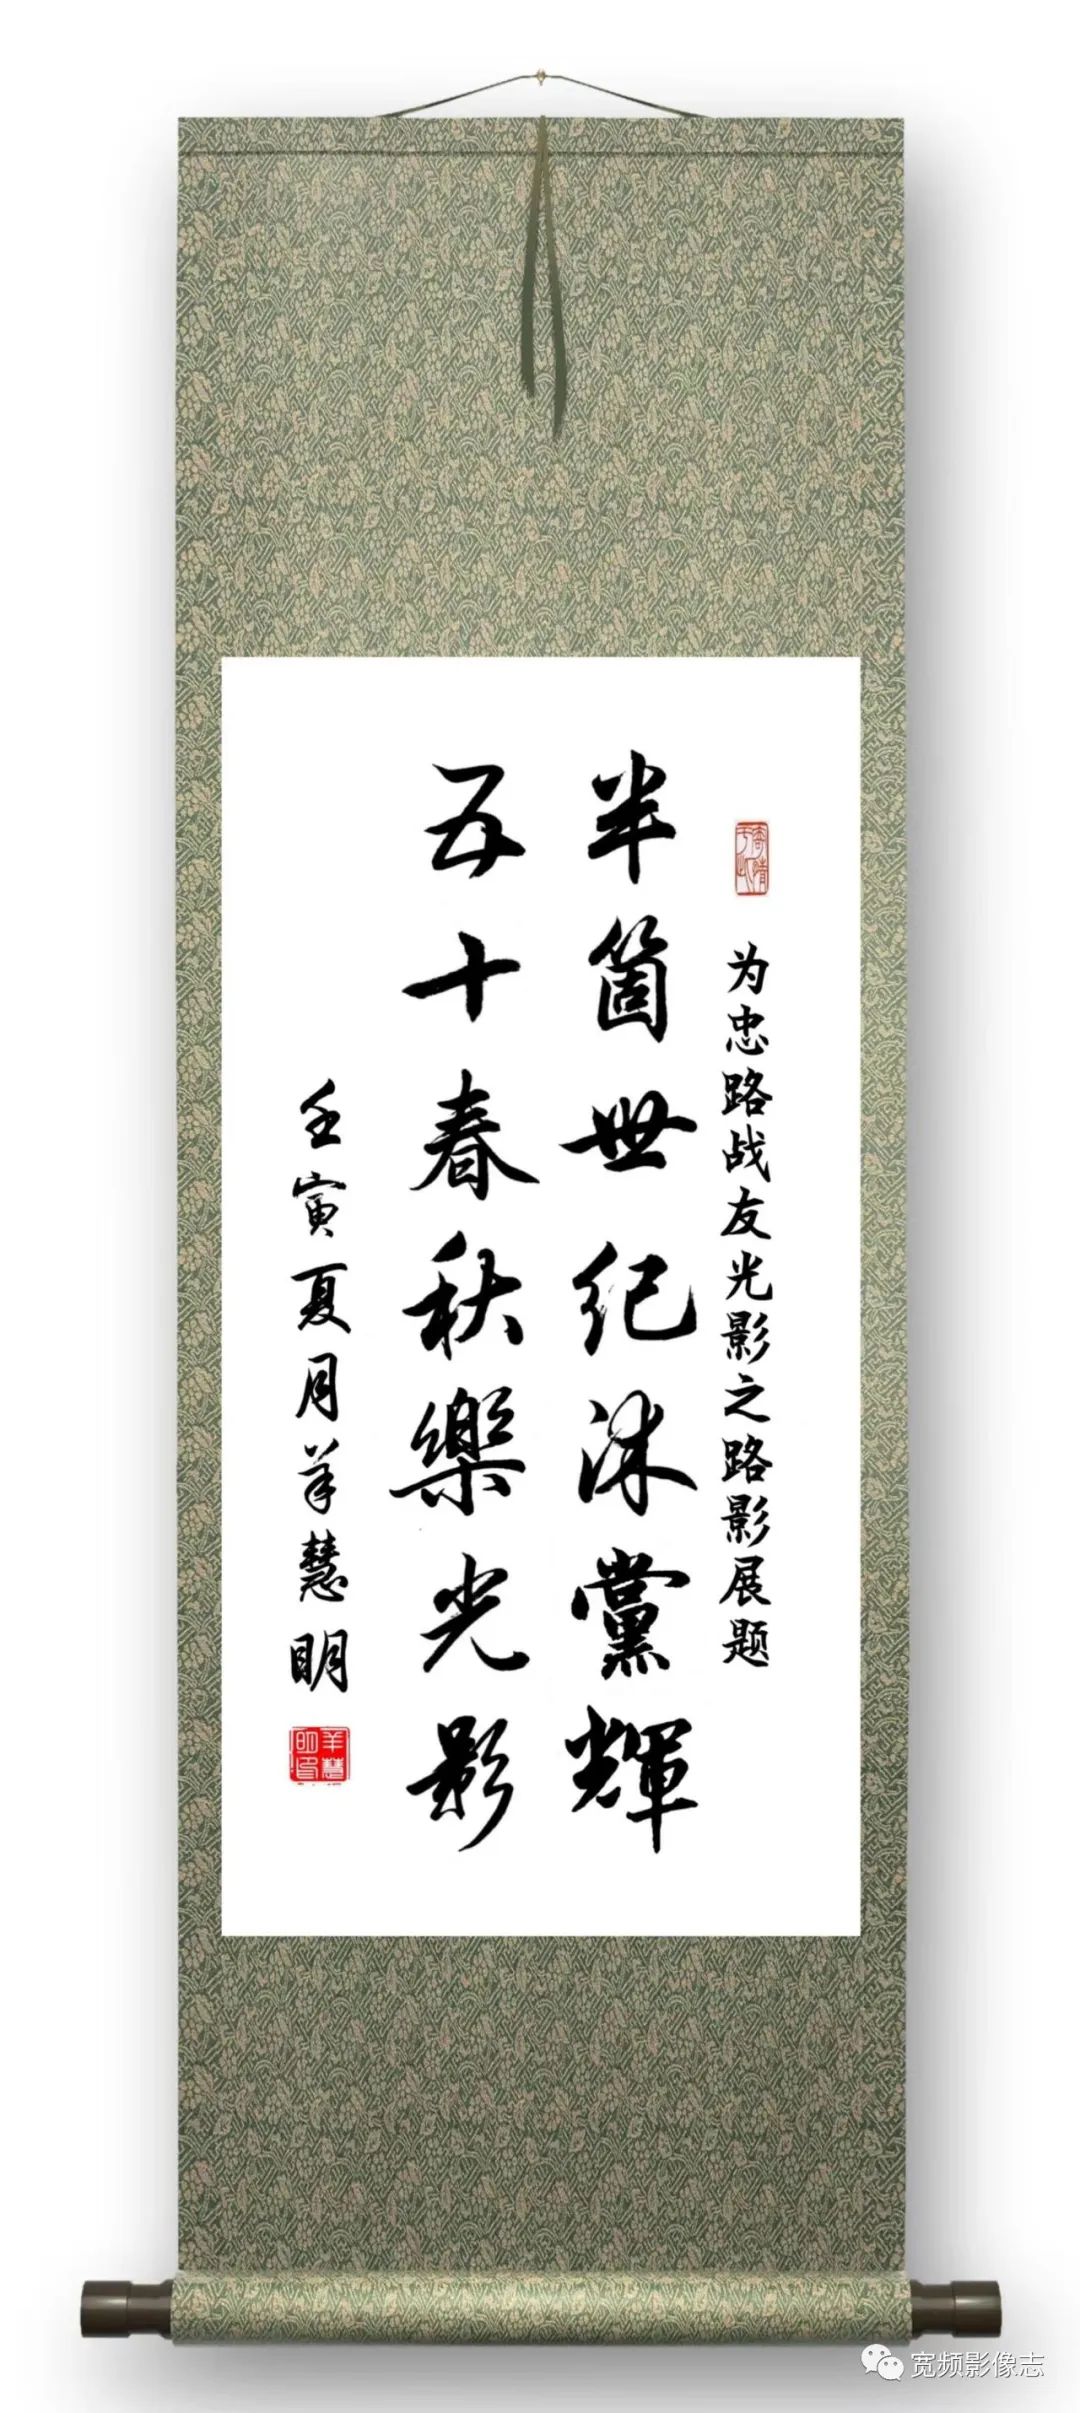 为忠路战友光影之路影展题
半箇世纪沐黨輝
五十春秋樂光影
壬寅夏月羊慧明
羊慧明印
宽频影像志